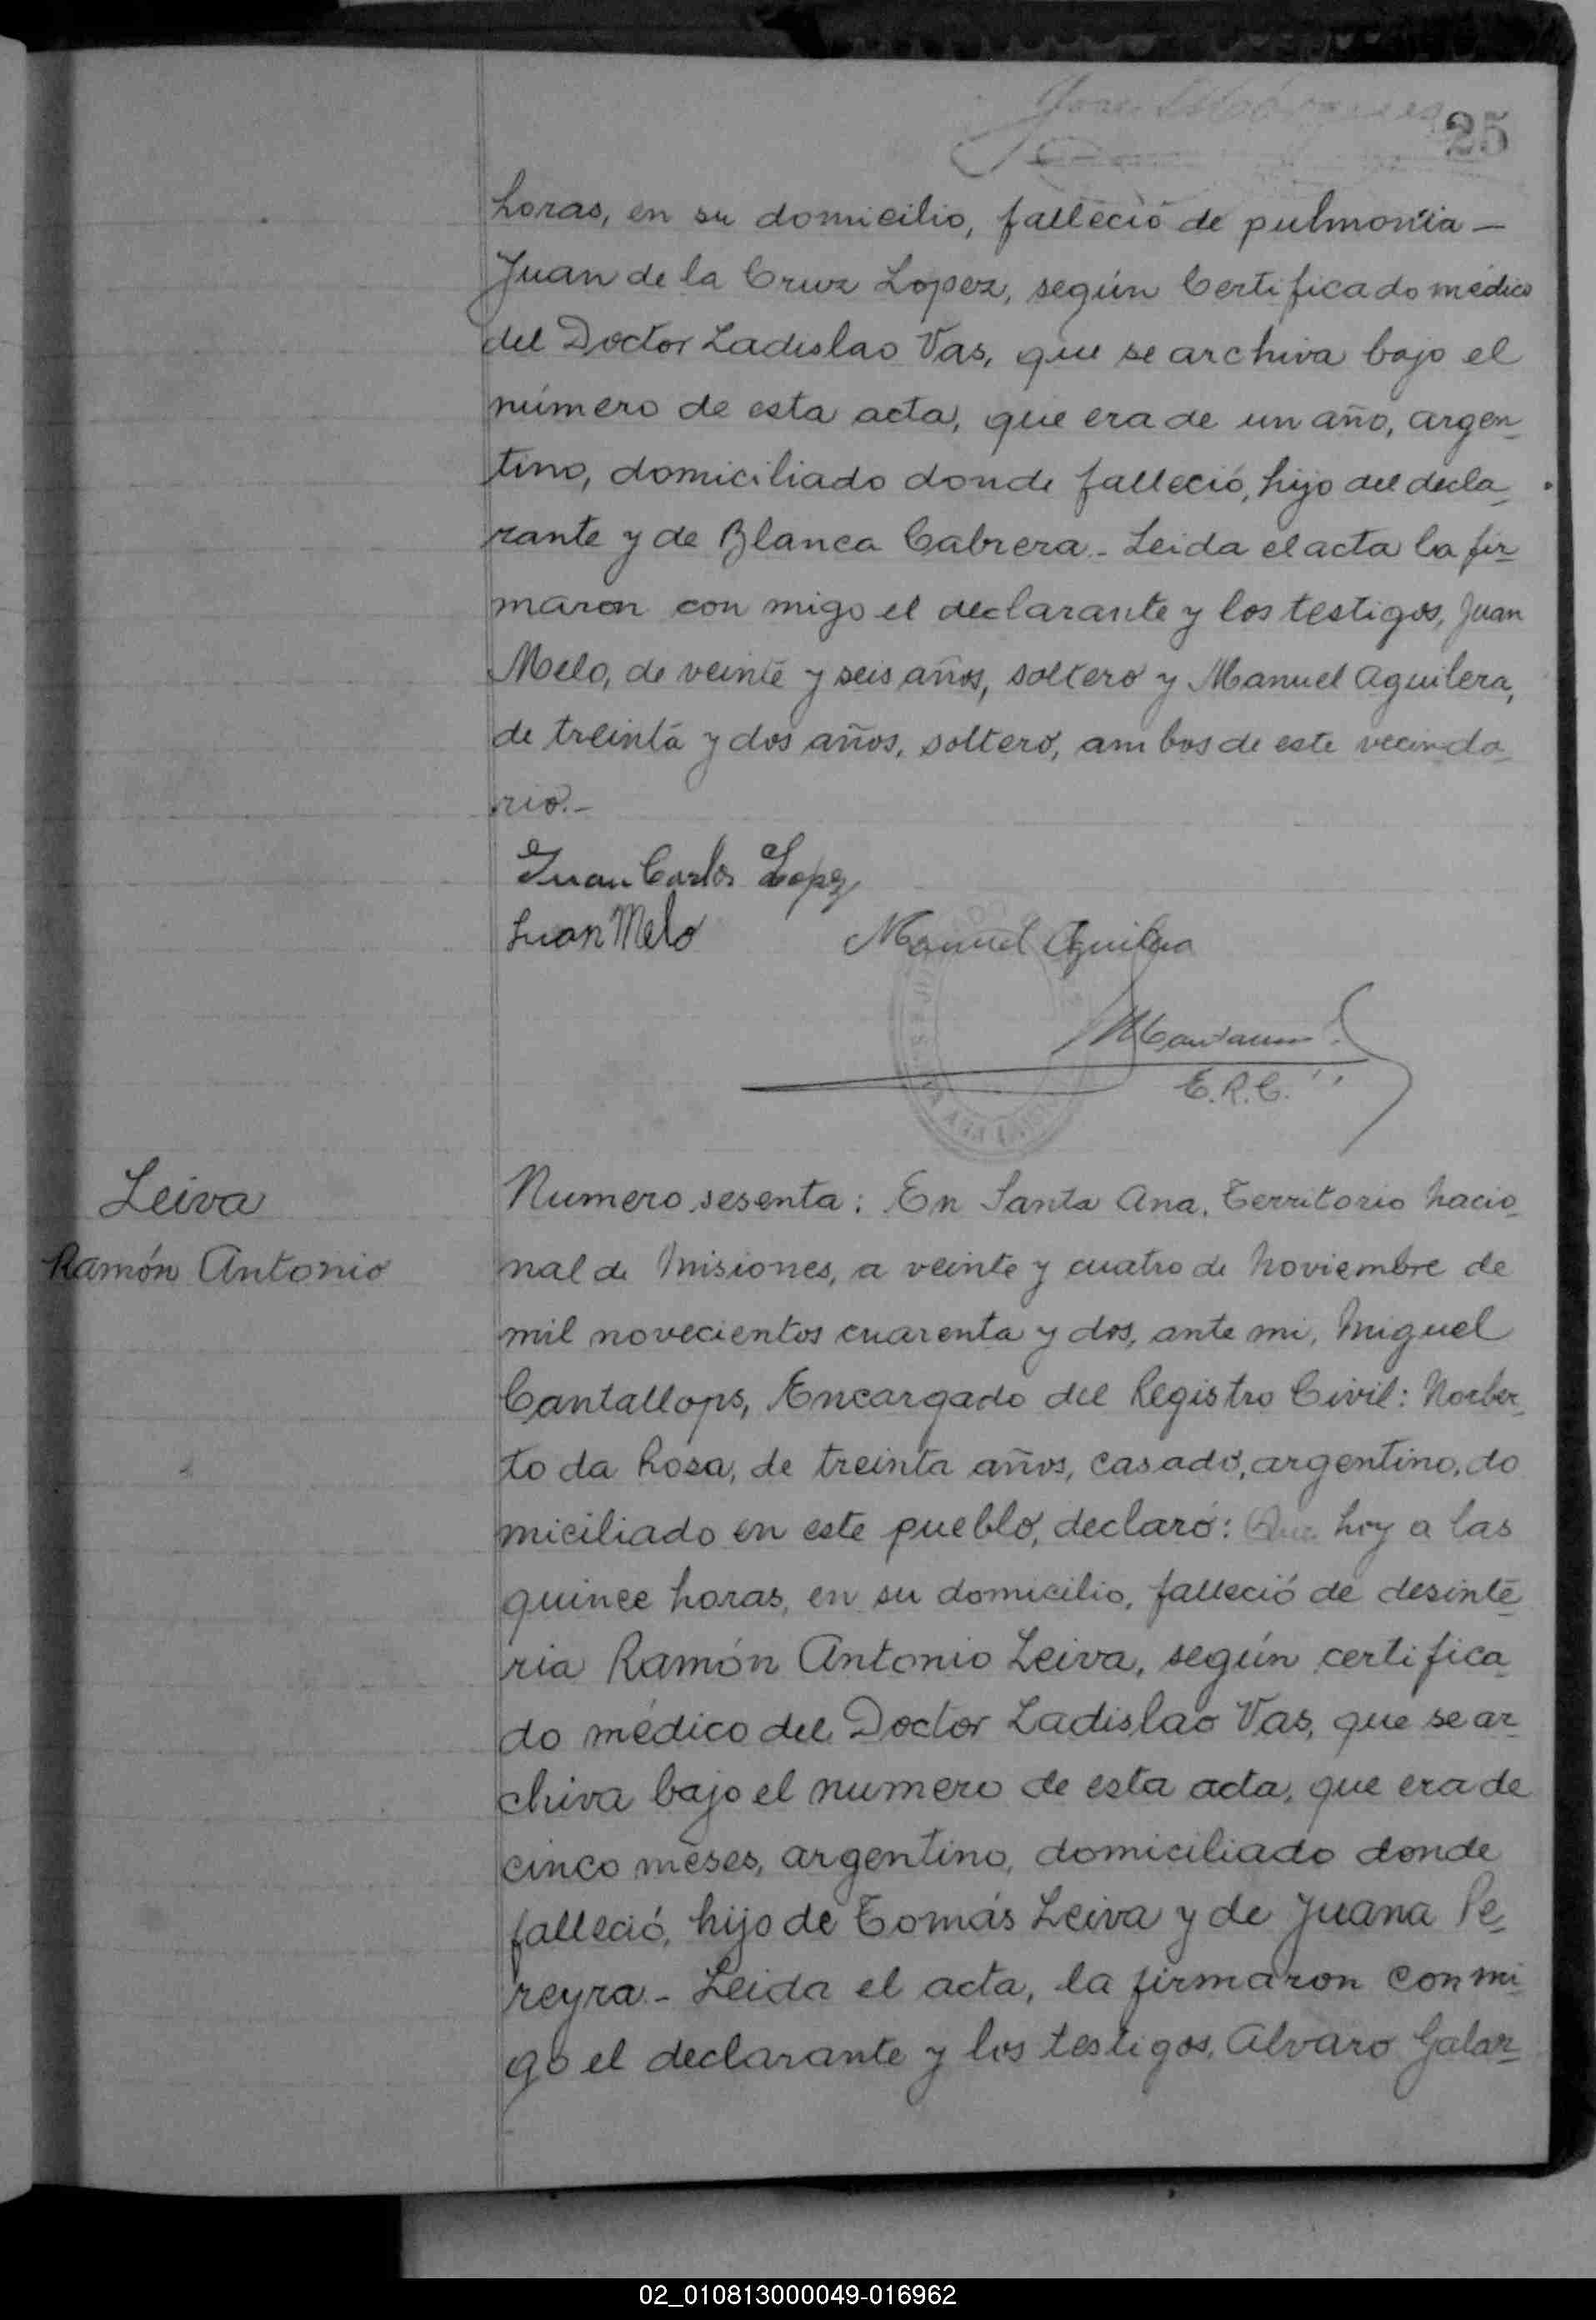 25
horas, en su domicilio, falleció de pulmonia —
Juan de la Cruz Lopez, según Certificado médico
del Doctor Ladislao Vas, que se archiva bajo el
número de esta acta, que era de un año, argen-
tino, domiciliado donde falleció, hijo del decla-
rante y de Blanca Cabrera.- Leida el acta la fir-
maron con migo el declarante y los testigos, Juan
Melo, de veinte y seis años, soltero y Manuel Aguilera,
de treinta y dos años, soltero, ambos de este vecinda-
rio.-
Juan Carlos Lopez
Juan Melo Manuel Aguilera
E.R.C.
Leiva
Ramón Antonio
Numero sesenta: En Santa Ana, Territorio nacio-
nal de Misiones, a veinte y cuatro de Noviembre de
mil novecientos cuarenta y dos, ante mi, Miguel
Cantallops, Encargado del Registro Civil: Norber-
to da Rosa, de treinta años, casado, argentino, do
miciliado en este pueblo, declaró: Que hoy a las
quince horas, en su domicilio, falleció de desinte-
ria Ramón Antonio Leiva, según certifica-
do médico del Doctor Ladislao Vas, que se ar-
chiva bajo el numero de esta acta, que era de
cinco meses, argentino, domiciliado donde
falleció, hijo de Tomás Leiva y de Juana Pe-
reyra.- Leida el acta, la firmaron con mi-
go el declarante y los testigos, Alvaro Galar-
02_010813000049-016962